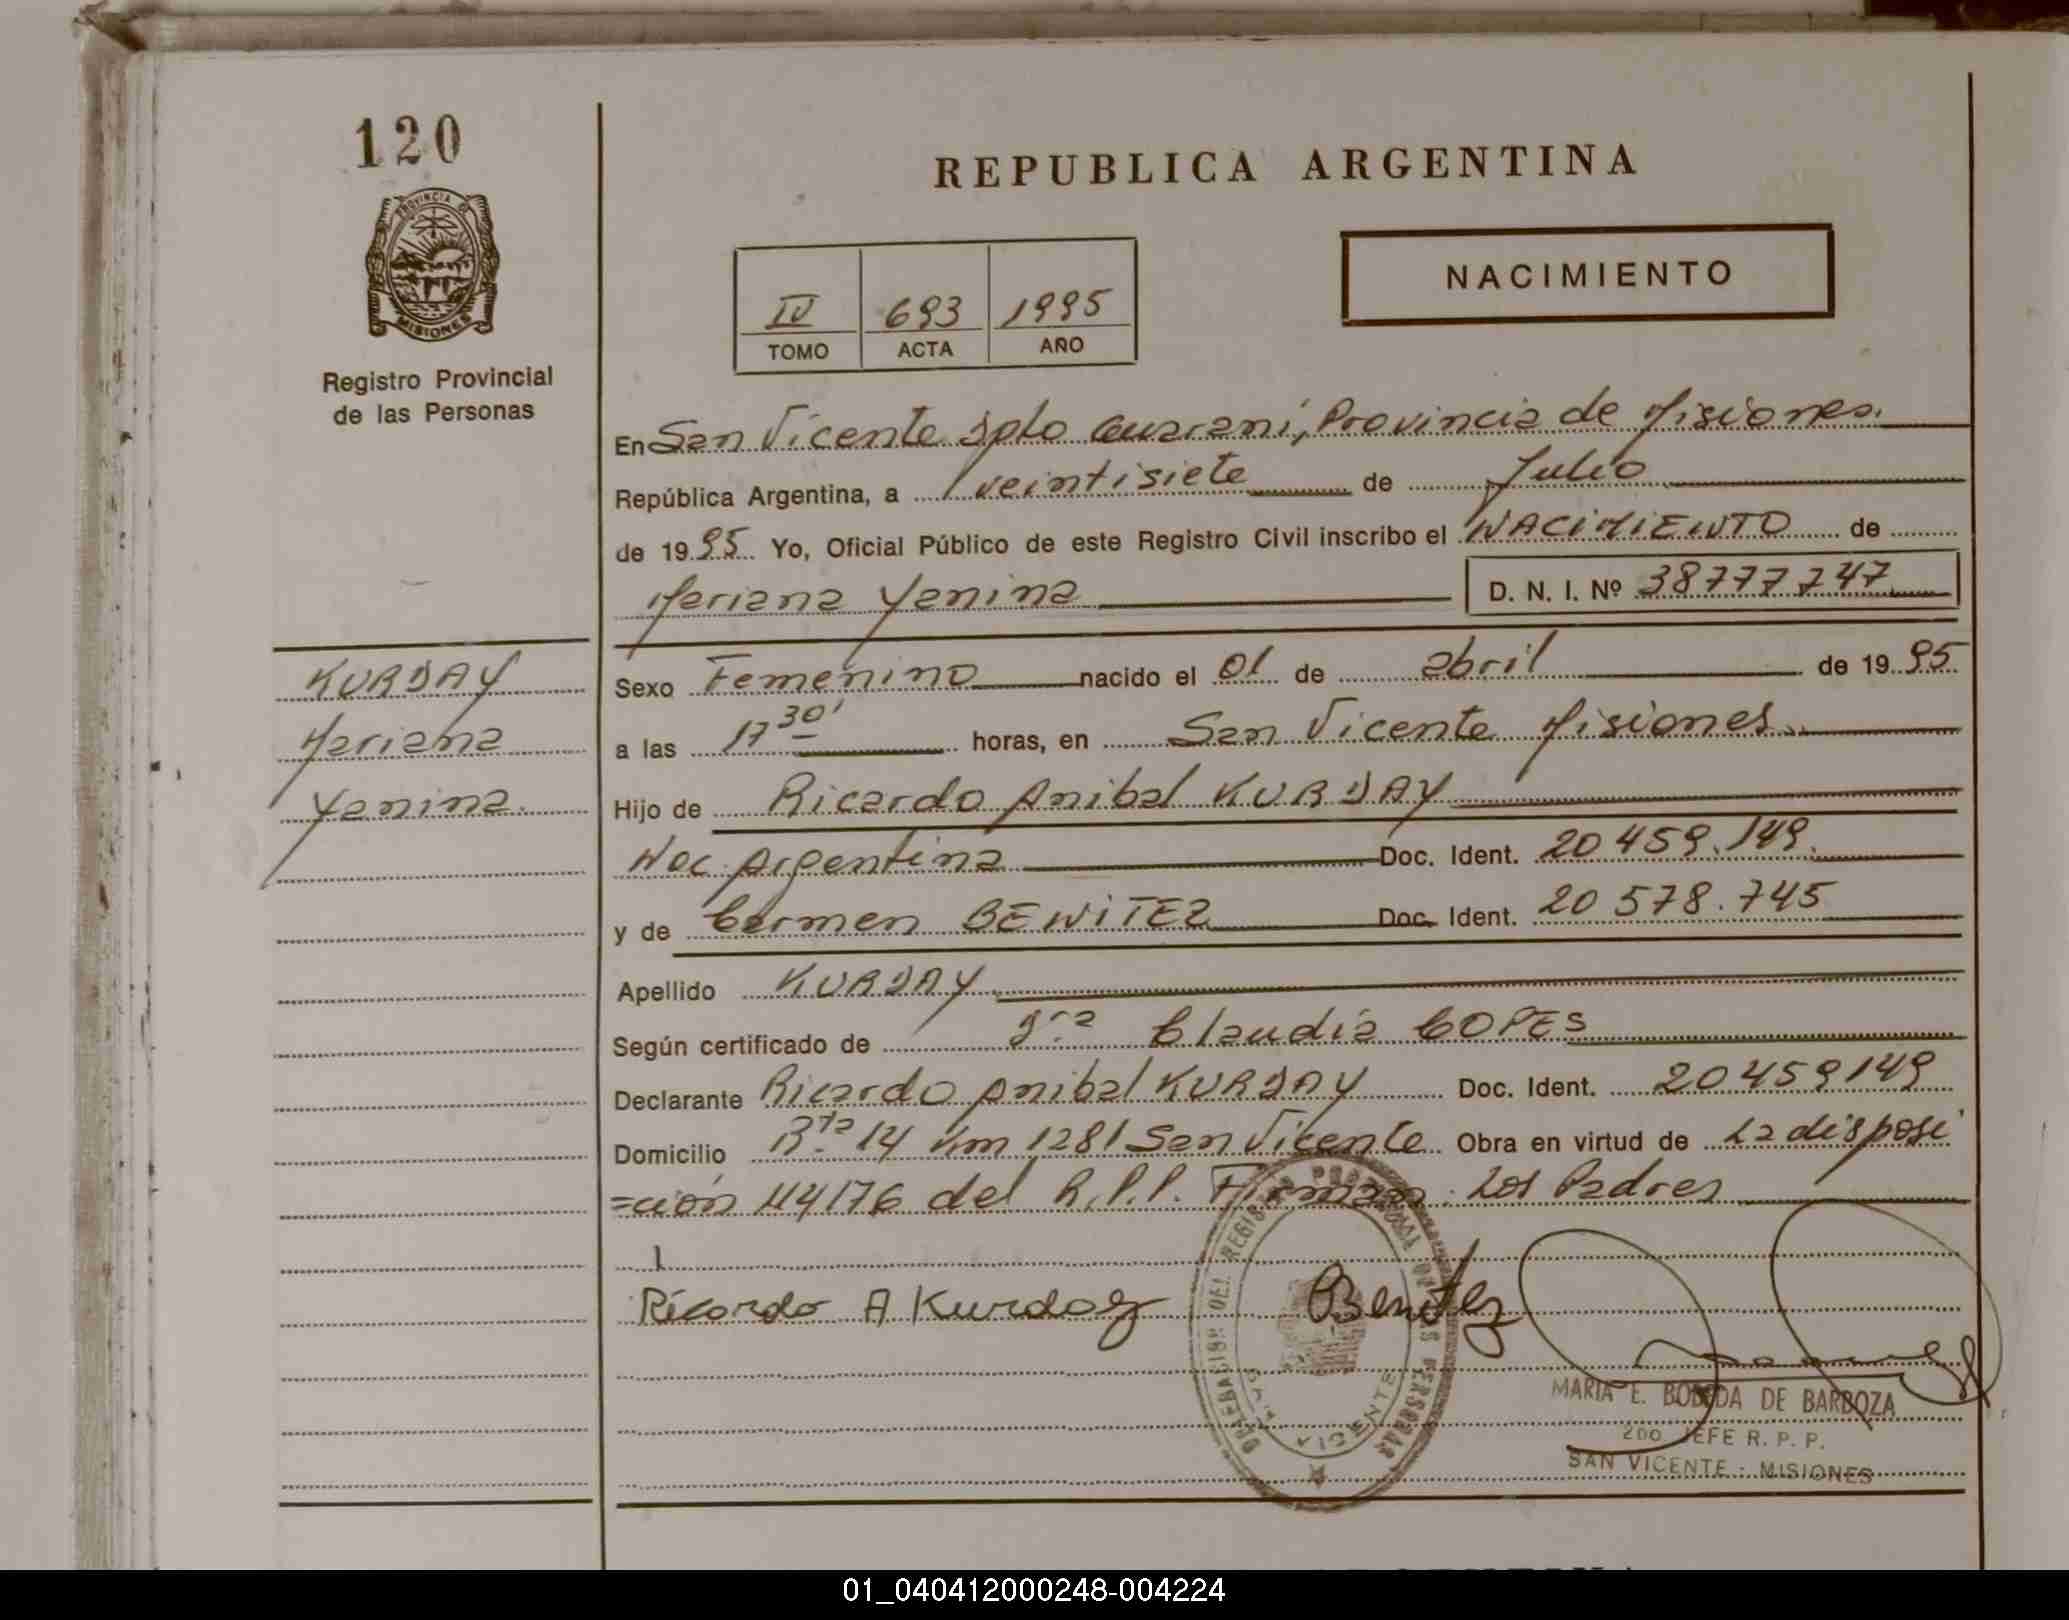 120
PROVINCIA DE
MISIONES
Registro Provincial
de las Personas
REPUBLICA ARGENTINA
NACIMIENTO
IV 693 1995
TOMO ACTA AÑO
En San Vicente Dpto Guaraní, Provincia de Misiones.
República Argentina, a veintisiete de Julio
de 1995 Yo, Oficial Público de este Registro Civil inscribo el NACIMIENTO de
Mariana Yanina D. N. I. Nº 38777747
KURDAY
Mariana
Yanina.
Sexo Femenino nacido el 01 de abril de 1995
a las 17 30' horas, en San Vicente Misiones.
Hijo de Ricardo Anibal KURDAY
Nac. Argentina Doc. Ident. 20 459.149.
y de Carmen BENITEZ Doc. Ident. 20 578.745
Apellido KURDAY
Según certificado de Dra Claudia COPES
Declarante Ricardo Anibal KURDAY Doc. Ident. 20459149
Domicilio Rta 14 Km 1281 San Vicente Obra en virtud de La disposi
=ción 114/76 del R.P.P. Firman: Los Padres
Ricardo A Kurday Benitez
DELEGACION DEL REGISTRO PROVINCIAL DE LAS PERSONAS
SAN VICENTE
MARIA E. BOBEDA DE BARBOZA
2DO. JEFE R. P. P.
SAN VICENTE - MISIONES
01_040412000248-004224